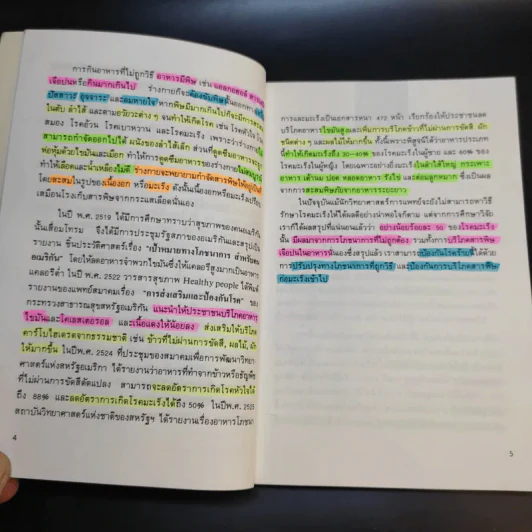 การกินอาหารที่ไม่ถูกวิธี อาหารมีพิษ เช่น แอลกอฮอล์ สารพิษ
เจือปนหรือกินมากเกินไป ร่างกายก็จะต้องขับพิษนั้นออกทาง
ปัสสาวะ อุจจาระ และลมหายใจ หากพิษมีมากเกินไปก็จะมีการสะสม
ในตับ ลำไส้ และตามอวัยวะต่าง ๆ จนทำให้เกิดโรค เช่น โรคหัวใจ
สมอง โรคอ้วน โรคเบาหวาน และโรคมะเร็ง เพราะว่าร่างกาย
สามารถกำจัดออกไปได้ ผนังของลำไส้เล็ก ส่วนที่ดูดซึมอาหาร
ห่อหุ้มด้วยไขมันและเมือก ทำให้การดูดซึมอาหารของร่างกาย
ทำให้เลือดและน้ำเหลืองไม่ดี ร่างกายจะพยายามกำจัดสารพิษให้อยู่
โดยสะสมในรูปของเนื้องอก หรือมะเร็ง ดังนั้นเนื้องอกหรือมะเร็งเปรียบ
เสมือนโรงเก็บสารพิษจากกระแสเลือดนั่นเอง
ในปี พ.ศ. 2519 ได้มีการศึกษาทราบว่าสุขภาพของคนอเมริกัน
นั้นเสื่อมโทรม จึงได้มีการประชุมรัฐสภาของอเมริกันและสรุปเป็น
รายงาน ชิ้นประวัติศาสตร์เรื่อง "เป้าหมายทางโภชนาการ สำหรับคน
อเมริกัน" โดยให้ลดอาหารจำพวกไขมันซึ่งให้แคลอรีสูงมาเป็นอาหาร
แคลอรีต่ำ ในปี พ.ศ. 2522 วารสารสุขภาพ Healthy people ได้พิมพ์
รายงานของแพทย์สมาคมเรื่อง "การส่งเสริมและป้องกันโรค" ของ
กระทรวงสาธารณสุขสหรัฐอเมริกา แนะนำให้ประชาชนบริโภคอาหาร
ไขมันและโคเลสเตอรอล และเนื้อแดงให้น้อยลง ส่งเสริมให้บริโภค
คาร์โบไฮเดรตจากธรรมชาติ เช่น ข้าวที่ไม่ผ่านการขัดสี, ผลไม้, ผัก
ให้มากขึ้น ในปีพ.ศ. 2524 ที่ประชุมของสมาคมเพื่อการพัฒนาวิทยา
ศาสตร์แห่งสหรัฐอเมริกา ได้รายงานว่าอาหารที่ทำจากข้าวหรือธัญพืช
ที่ไม่ผ่านการขัดสีดัดแปลง สามารถจะลดอัตราการเกิดโรคหัวใจได้
ถึง 88% และลดอัตราการเกิดโรคมะเร็งได้ถึง 50% ในปีพ.ศ. 2525
สถาบันวิทยาศาสตร์แห่งชาติของสหรัฐฯ ได้รายงานเรื่องอาหารโภชนา
4
การและมะเร็งเป็นเอกสารหนา 472 หน้า เรียกร้องให้ประชาชนลด
บริโภคอาหารไขมันสูงและเพิ่มการบริโภคข้าวที่ไม่ผ่านการขัดสี, ผัก
ชนิดต่าง ๆ และผลไม้ให้มากขึ้น ทั้งนี้เพราะพิสูจน์ได้ว่าอาหารประเภท
นี้ทำให้เกิดมะเร็งถึง 30-40% ของโรคมะเร็งในผู้ชาย และ 60% ของ
โรคมะเร็งในผู้หญิง โดยเฉพาะอย่างยิ่งมะเร็งในลำไส้ใหญ่ กระเพาะ
อาหาร เต้านม ปอด หลอดอาหาร รังไข่ และต่อมลูกหมาก ซึ่งเป็นผล
จากการสะสมพิษภัยจากอาหารระยะยาว
ในปัจจุบันแม้นักวิทยาศาสตร์การแพทย์จะยังไม่สามารถหาวิธี
รักษาโรคมะเร็งให้ได้ผลดีอย่างน่าพอใจก็ตาม แต่จากการศึกษาวิจัย
เราก็ได้ผลสรุปที่แน่นอนแล้วว่า อย่างน้อยร้อยละ 50 ของโรคมะเร็ง
นั้น มีผลมาจากการโภชนาการที่ไม่ถูกต้อง รวมทั้งการบริโภคสารพิษ
เจือปนในอาหารนั่นเองซึ่งสรุปแล้ว เราสามารถป้องกันโรคร้ายนี้ได้ด้วย
การปรับปรุงทางโภชนาการที่ถูกวิธี และป้องกันการบริโภคสารพิษ
ก่อมะเร็งเข้าไป
5